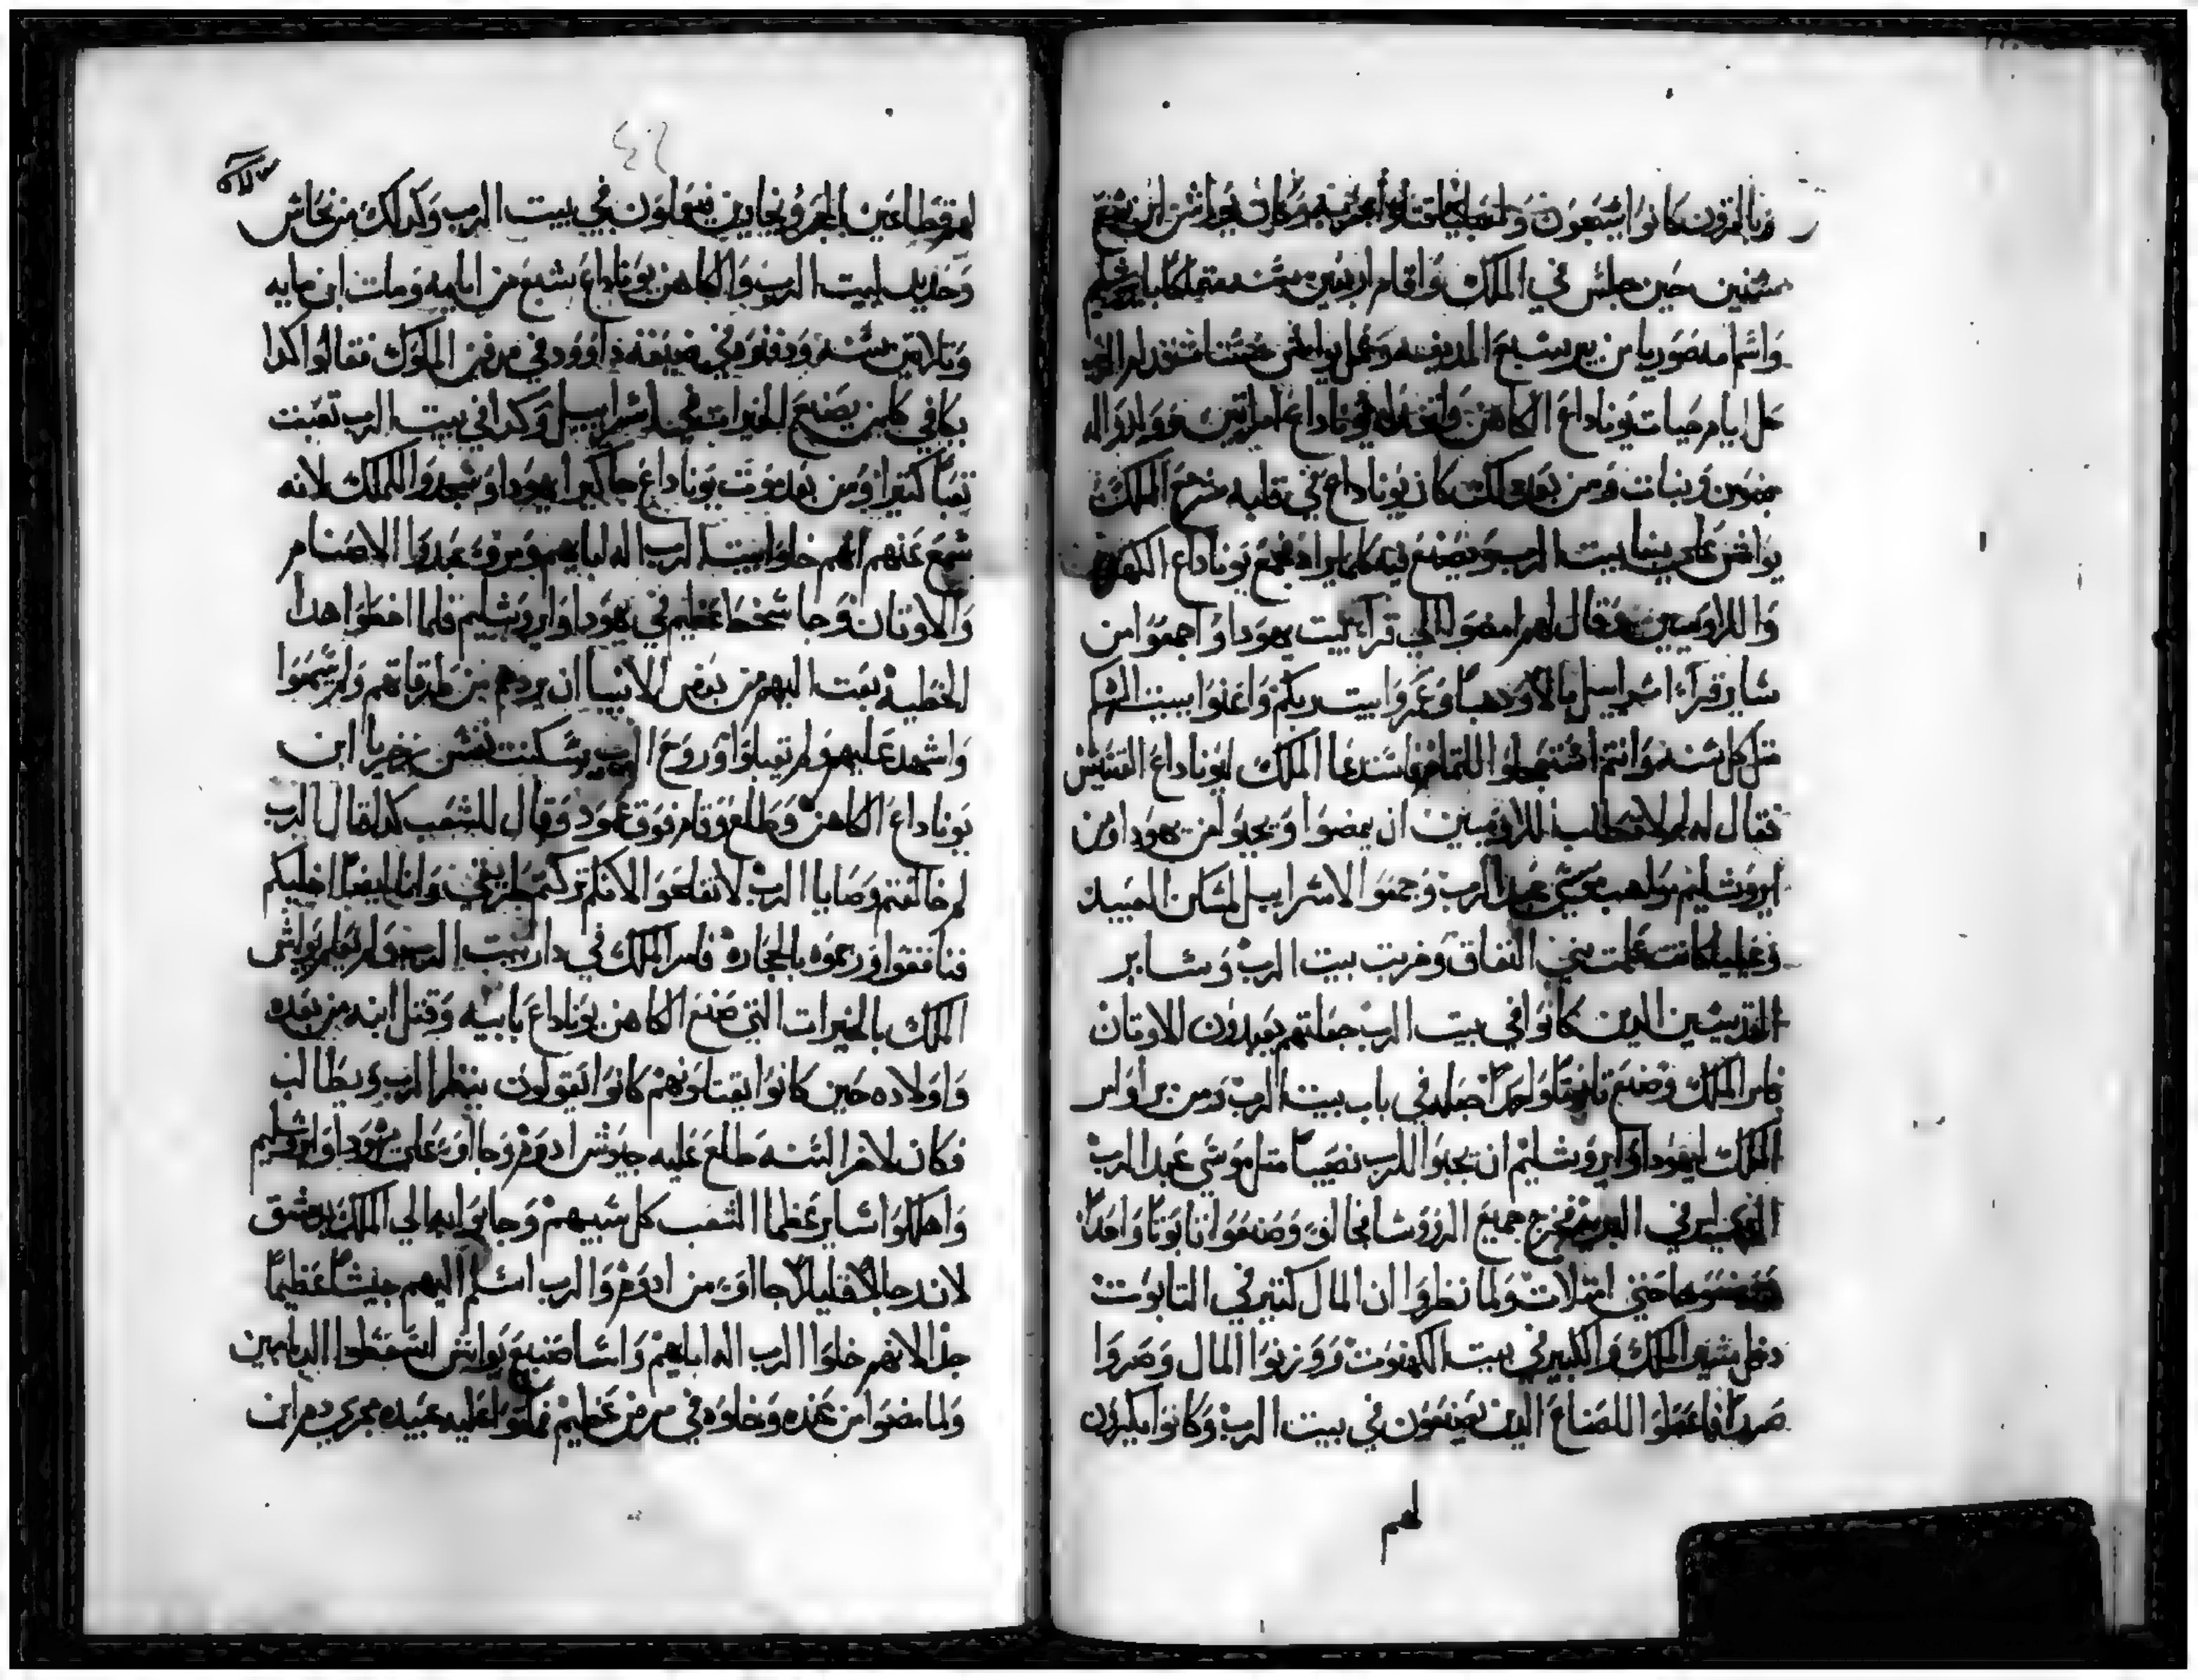 سنين حين جلس في الملك واقام اربعين سنه متملكا بايروشليم
واسم امه صوريا من بير سبع المدينه وعمل يواش حسنات قدام الرب
كل ايام حيات يوناداع الكاهن واتخد له يوناداع امراتين وولدوا له
بنين وبنات ومن بعد دلك كان يوناداع في قلبه خرج الملك
يواش على بنا بيت الرب ويصنع فيه كلما يراد فجمع يوناداع الكهنه
واللاويين وقال لهم امضوا الي قرا بيت يهودا واجمعوا من
ساير قرا اسراييل مالا ودهبا وعمروا بيت ربكم واغنوا ببيت الشكم
متل كل سنه وانتم اهتموا للتمام فاستدعا الملك ليوناداع القسيس
فقال له لم لا تطالب للاويين ان يمضوا ويجبوا من يهودا ومن
ايروشليم مواهب موسي عبد الرب وجمعوا الاسراييل لمسكن العبيد
وغيليا كانت علمت بني النفاق وخربت بيت الرب وساير
القديسين الدين كانوا في بيت الرب جعلتهم يعبدون الاوتان
فامر الملك وصنع تابوتا واحدا جعله في باب بيت الرب ومن برا وامر
الملك ليهودا وايروشليم ان تجبوا للرب نصيبا متل موسي عبد الرب
في البريه فخرج جميع الرووسا فخالق وصنعوا تابوتا واحدا
حتي امتلات ولما نظروا ان المال كتير في التابوت
دخل مشير الملك والكبير في بيت الكهنوت ووزنوا المال وصروا
صررا فاعطوا للصناع الدين يصنعون في بيت الرب وكانوا يكرون
لهم
لهم قطاعين الحجر ونجارين فيعملون في بيت الرب وكدلك من نحاس
وحديد لبيت الرب والكاهن يوناداع شبع من ايامه ومات ابن مايه
وتلاتين سنه ودفنوه في ضيعه داوود في مدفن الملوك فقالوا كدا
يكافي كلمن يصنع الخيرات في اسراييل وكدا في بيت الرب تعبت
تعبا كتيرا ومن بعد موت يوناداع جا كبير يهودا وسجدوا للملك لانه
سمع عنهم انهم خلوا بيت الرب اله ابايهم ومروق عبدوا الاصنام
والاوتان وجا سخط عظيم في يهودا وايروشليم فلما اخطوا هدا
الخطيه بعت اليهم من بعض الانبيا ان يردهم من طرقاتهم ولم يسمعوا
واشهد عليهم ولم تقبلوا وروح الرب سكنت نفس زخريا ابن
يوناداع الكاهن وطلع وقام فوق عمود وقال للشعب كدا قال الرب
لم خالفتم وصايا الرب لا تفلحوا لانكم تركتم طريقي وانا ايضا اخليكم
فنافقوا ورجموه بالحجاره فامر الملك في دار بيت الرب ولم يعلم يواش
الملك بالخيرات التي صنع الكاهن يوناداع بابيه وقتل ابنه من بعده
واولاده حين كانوا يقتلونهم كانوا يقولون ينظر الرب ويطالب
فكان لاخر السنه طلع عليه جيوش ادوم وجا اوق علي يهودا وايروشليم
واهلكوا ساير عظما الشعب كل سبيهم وجابوا بهم الي الملك بدمشق
لان رجالا قليلا جا اوق من ادوم والرب اسلم اليهم جيشا عظيما
جدا لانهم خلوا الرب اله ابايهم واسا صنع يواش
ولما مضوا من عنده وخلوه في مرض عظيم نملوا عليه عبيده مجري دم ابن